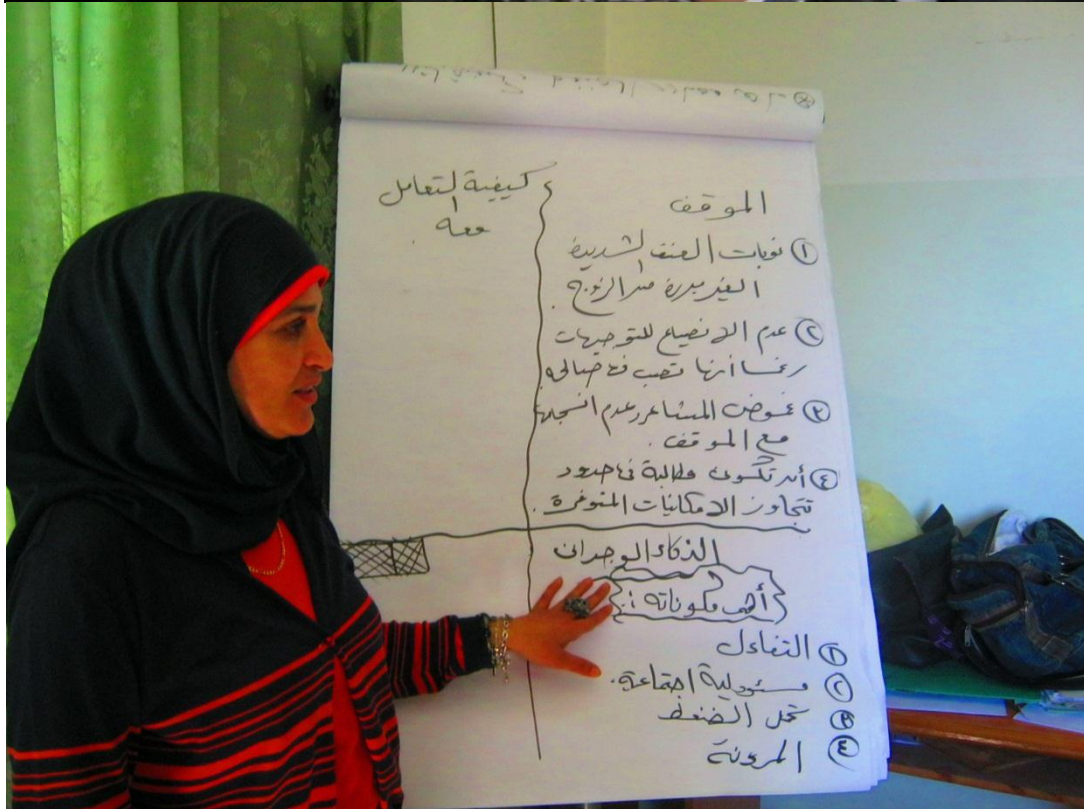 الموقف
① نوبات العنف الشديدة
الغير مبررة من الزوج.
② عدم الانصياع للتوجيهات
رغم أنها تصب في صالحه
③ غموض المشاعر وعدم انسجامها
مع الموقف.
④ أن تكون مطالبة في حدود
تتجاوز الامكانيات المتوفرة.
كيفية التعامل
معه.
الذكاء الوجداني
أهم مكوناته:
① التفاؤل
② مسئولية اجتماعية.
③ تحمل الضغط
④ المرونة